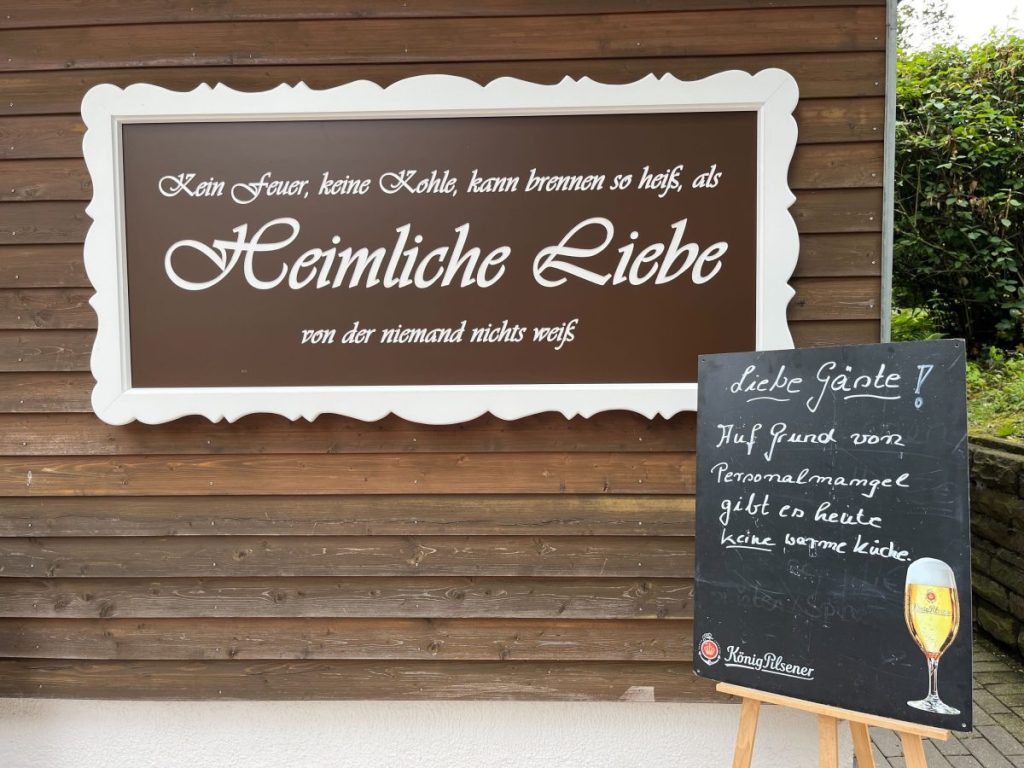 Kein Feuer, keine Kohle, kann brennen so heiß, als
Heimliche Liebe
von der niemand nichts weiß
Liebe Gäste!
Auf Grund von
Personalmangel
gibt es heute
keine warme Küche.
König Pilsener